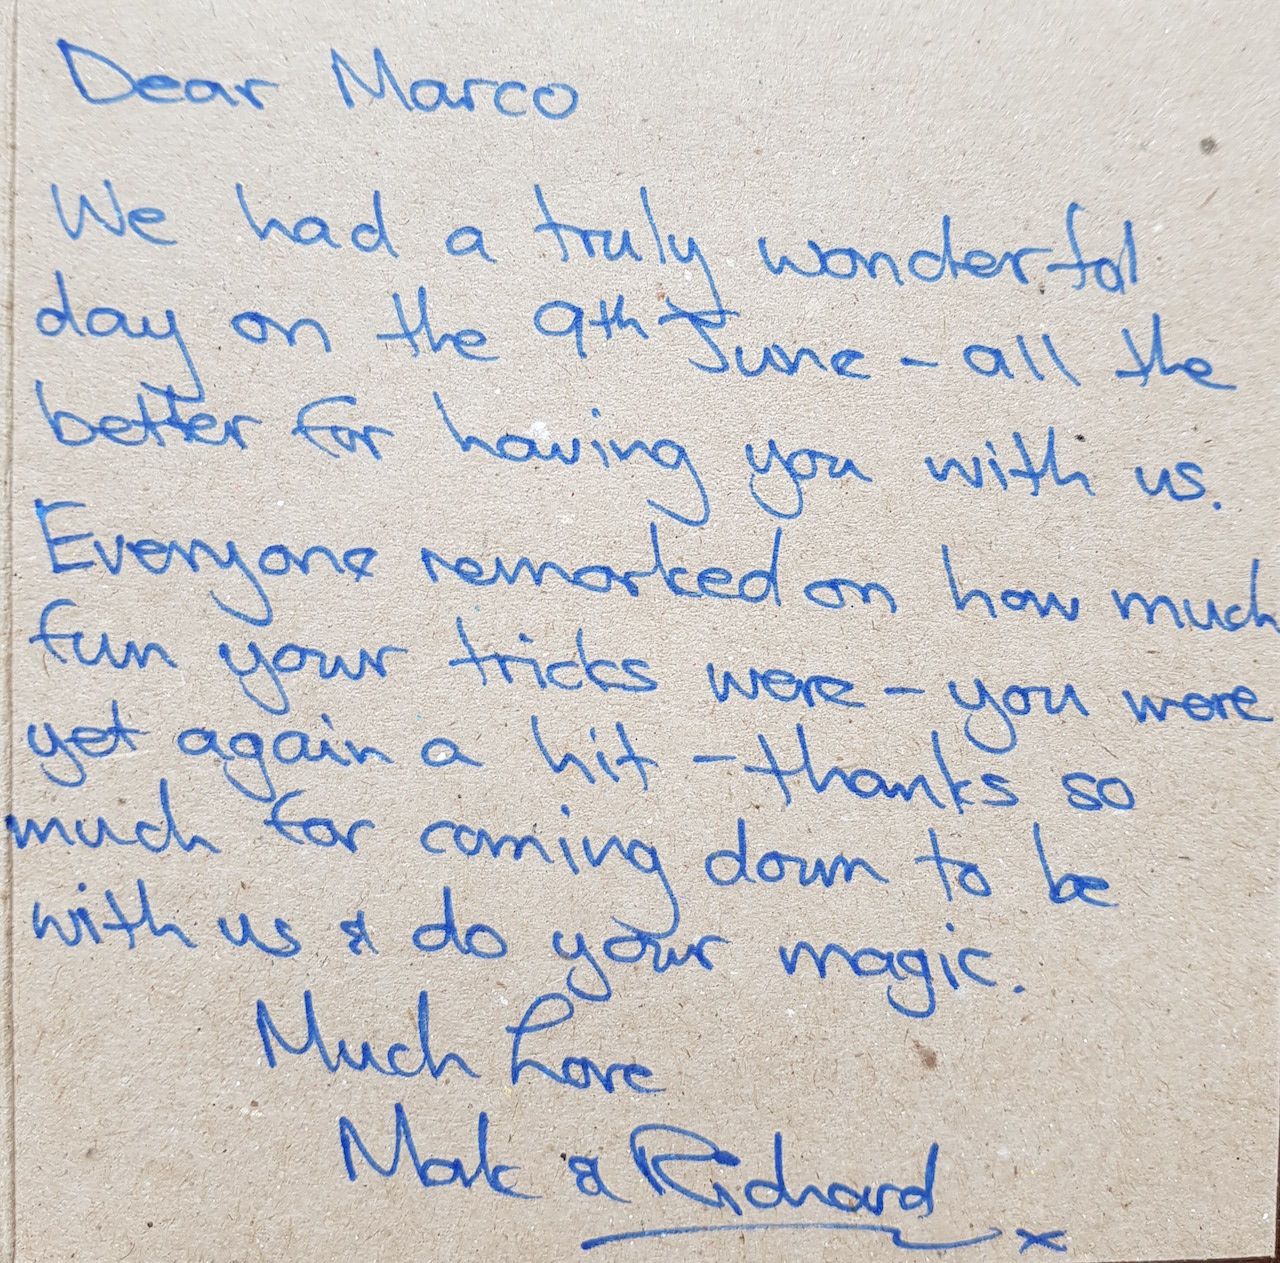 Dear Marco
We had a truly wonderful
day on the 9th June - all the
better for having you with us.
Everyone remarked on how much
fun your tricks were - you were
yet again a hit - thanks so
much for coming down to be
with us & do your magic.
Much Love
Mark & Richard
x